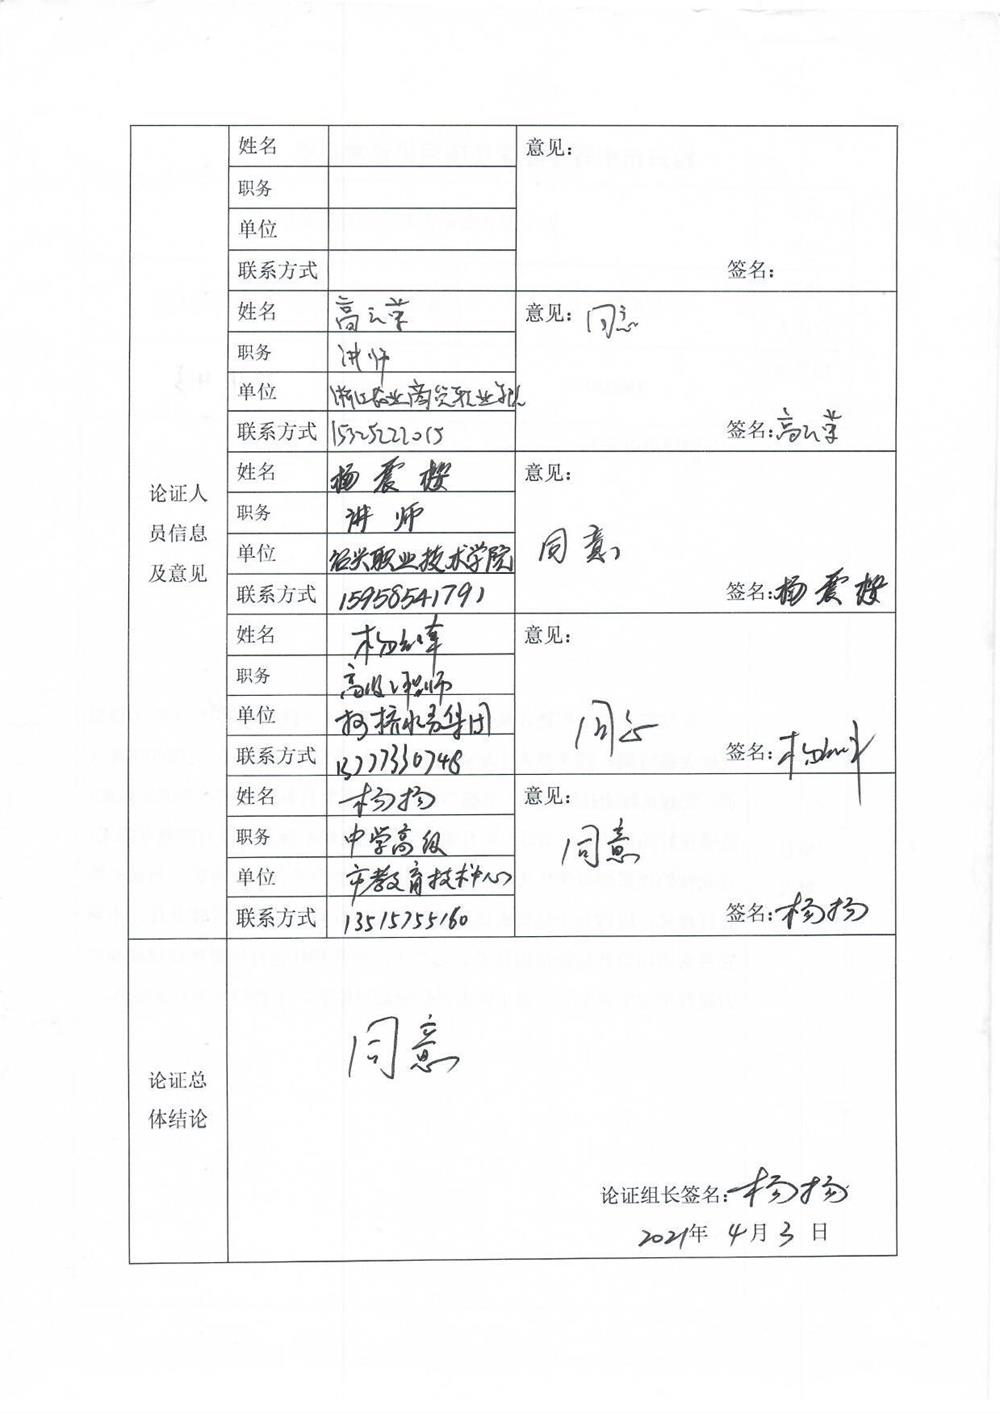 姓名
意见：
职务
单位
联系方式
签名：
姓名 高云荣
意见： 同意
职务 讲师
单位 浙江农业商贸职业学院
联系方式 15325222015
签名：高云荣
论证人
员信息
及意见
姓名 杨震樱
意见：
职务 讲师
同意
单位 绍兴职业技术学院
联系方式 15958541791
签名：杨震樱
姓名
意见：
职务 高级工程师
单位 柯桥水务集团
同意
联系方式 13777330748
签名：
姓名 杨扬
意见：
职务 中学高级
同意
单位 市教育技术中心
联系方式 13515755160
签名：杨扬
论证总
体结论
同意
论证组长签名：杨扬
2021年 4月 3 日